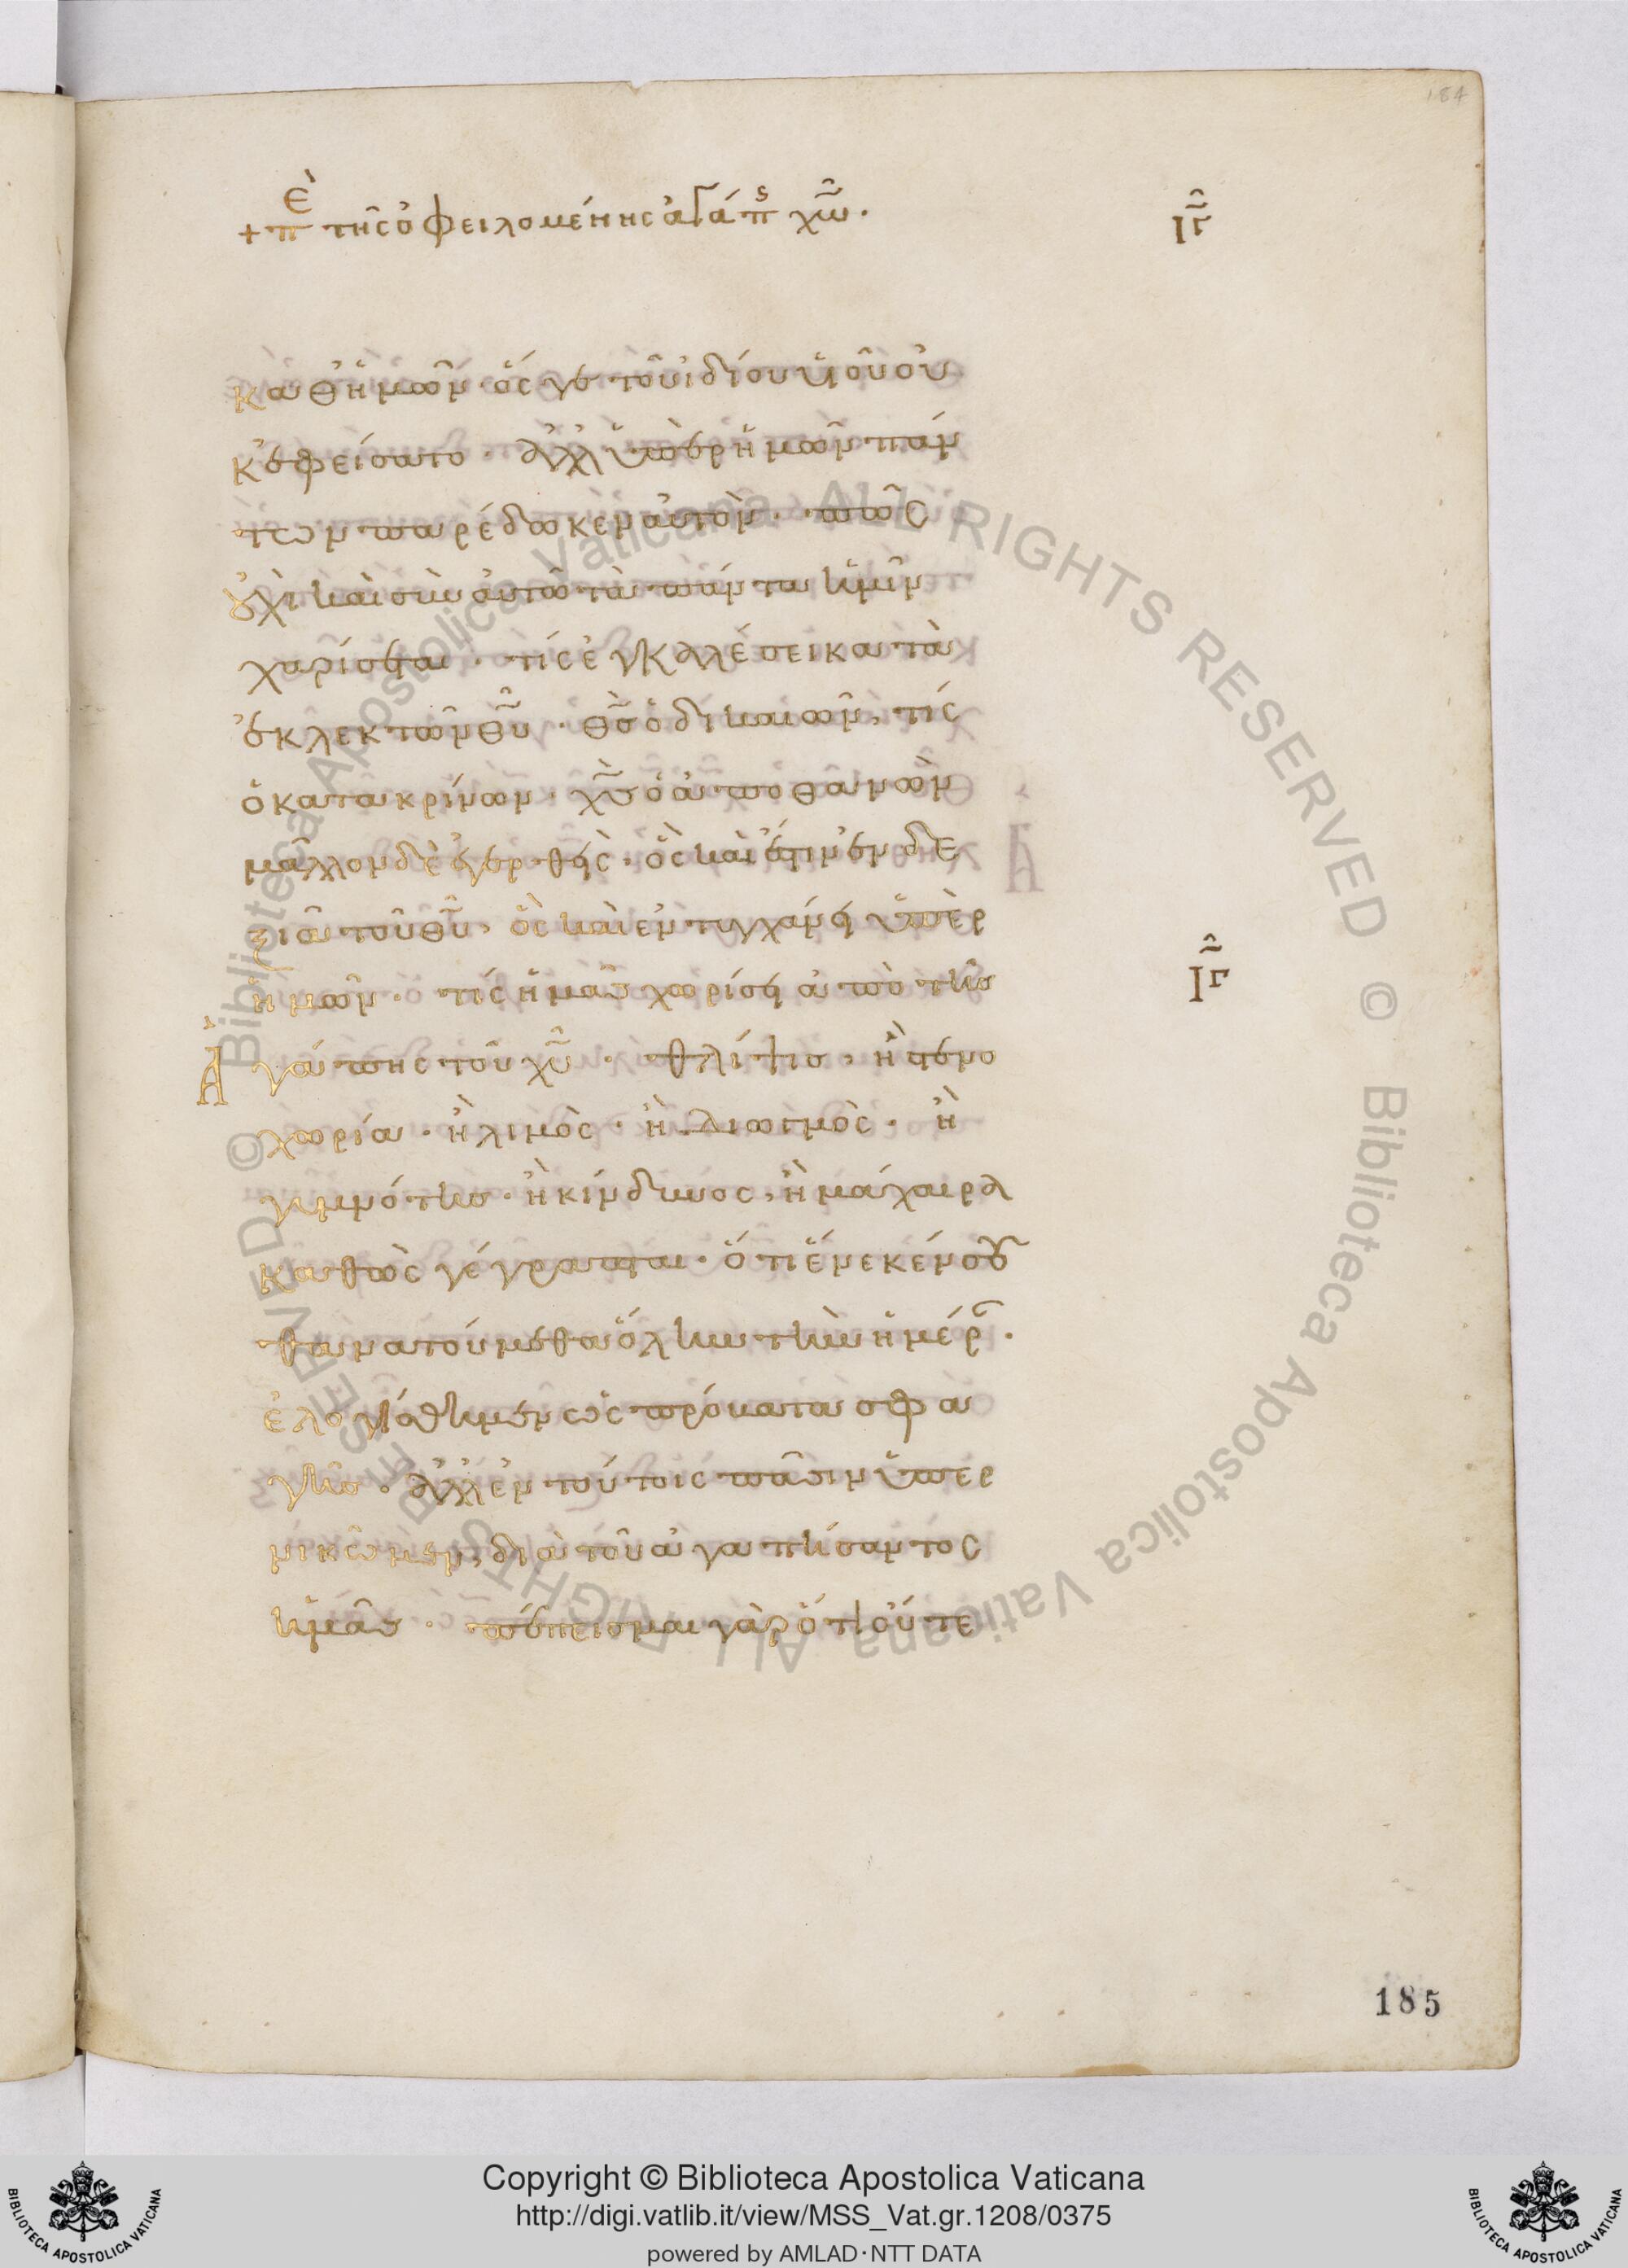 184
+ πε τῆς ὀφειλομένης ἀγάπης χῶ.
ιγ
καθ ἡμῶν· ὅς γε τοῦ ἰδίου υἱοῦ οὐ
κ ἐφείσατο· ἀλλ ὑπὲρ ἡμῶν πάν
των παρέδωκεν αὐτὸν· πῶς
οὐχὶ καὶ σὺν αὐτῶ τὰ πάντα ἡμῖν
χαρίσεται· τίς ἐγκαλέσει κατὰ
ἐκλεκτῶν θῦ· θς ὁ δικαιῶν, τίς
ὁ κατακρίνων· χς ὁ ἀποθανὼν
μᾶλλον δὲ ἐγερθείς· ὃς καὶ ἐστιν ἐν δε
ξιᾶ τοῦ θῦ, ὃς καὶ ἐντυγχάνει ὑπὲρ
ἡμῶν· τίς ἡμᾶς χωρίσει ἀπὸ τῆς
ιγ
Ἀγάπης τοῦ χῦ· θλίψις, ἢ στενο
χωρία· ἢ λιμὸς· ἢ διωγμὸς· ἢ
γυμνότης· ἢ κίνδυνος, ἢ μάχαιρα
καθὼς γέγραπται· ὅτι ἕνεκέν σου
θανατούμεθα ὅλην τὴν ἡμέρ·
ἐλογίσθημεν ὡς πρόβατα σφα
γῆς· ἀλλ ἐν τούτοις πᾶσιν ὑπερ
νικῶμεν, διὰ τοῦ ἀγαπήσαντος
ἡμᾶς· πέπεισμαι γὰρ ὅτι οὔτε
185
© Biblioteca Apostolica Vaticana ALL RIGHTS RESERVED © Biblioteca Apostolica Vaticana ALL RIGHTS RESERVED
Copyright © Biblioteca Apostolica Vaticana
http://digi.vatlib.it/view/MSS_Vat.gr.1208/0375
powered by AMLAD·NTT DATA
BIBLIOTECA APOSTOLICA VATICANA
BIBLIOTECA APOSTOLICA VATICANA